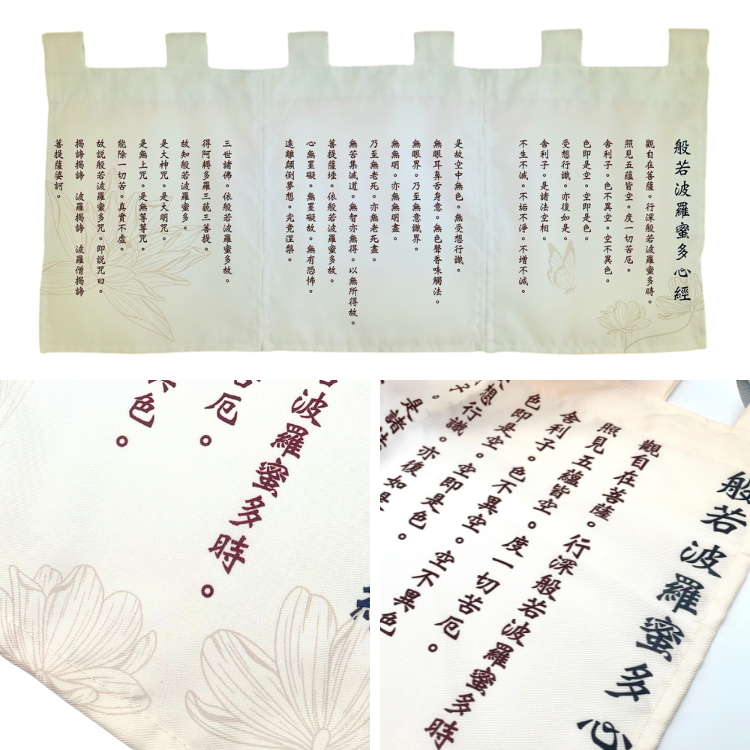 般若波羅蜜多心經
觀自在菩薩。行深般若波羅蜜多時。
照見五蘊皆空。度一切苦厄。
舍利子。色不異空。空不異色。
色即是空。空即是色。
受想行識。亦復如是。
舍利子。是諸法空相。
不生不滅。不垢不淨。不增不減。
是故空中無色。無受想行識。
無眼耳鼻舌身意。無色聲香味觸法。
無眼界。乃至無意識界。
無無明。亦無無明盡。
乃至無老死。亦無老死盡。
無苦集滅道。無智亦無得。以無所得故。
菩提薩埵。依般若波羅蜜多故。
心無罣礙。無罣礙故。無有恐怖。
遠離顛倒夢想。究竟涅槃。
三世諸佛。依般若波羅蜜多故。
得阿耨多羅三藐三菩提。
故知般若波羅蜜多。
是大神咒。是大明咒。
是無上咒。是無等等咒。
能除一切苦。真實不虛。
故說般若波羅蜜多咒。即說咒曰。
揭諦揭諦　波羅揭諦　波羅僧揭諦
菩提薩婆訶。
若波羅蜜多時。
苦厄。
異色。
般若波羅蜜多心
觀自在菩薩。行深般若波羅蜜多時
照見五蘊皆空。度一切苦厄。
舍利子。色不異空。空不異色
色即是空。空即是色。
想行識。亦復如
子。是諸法